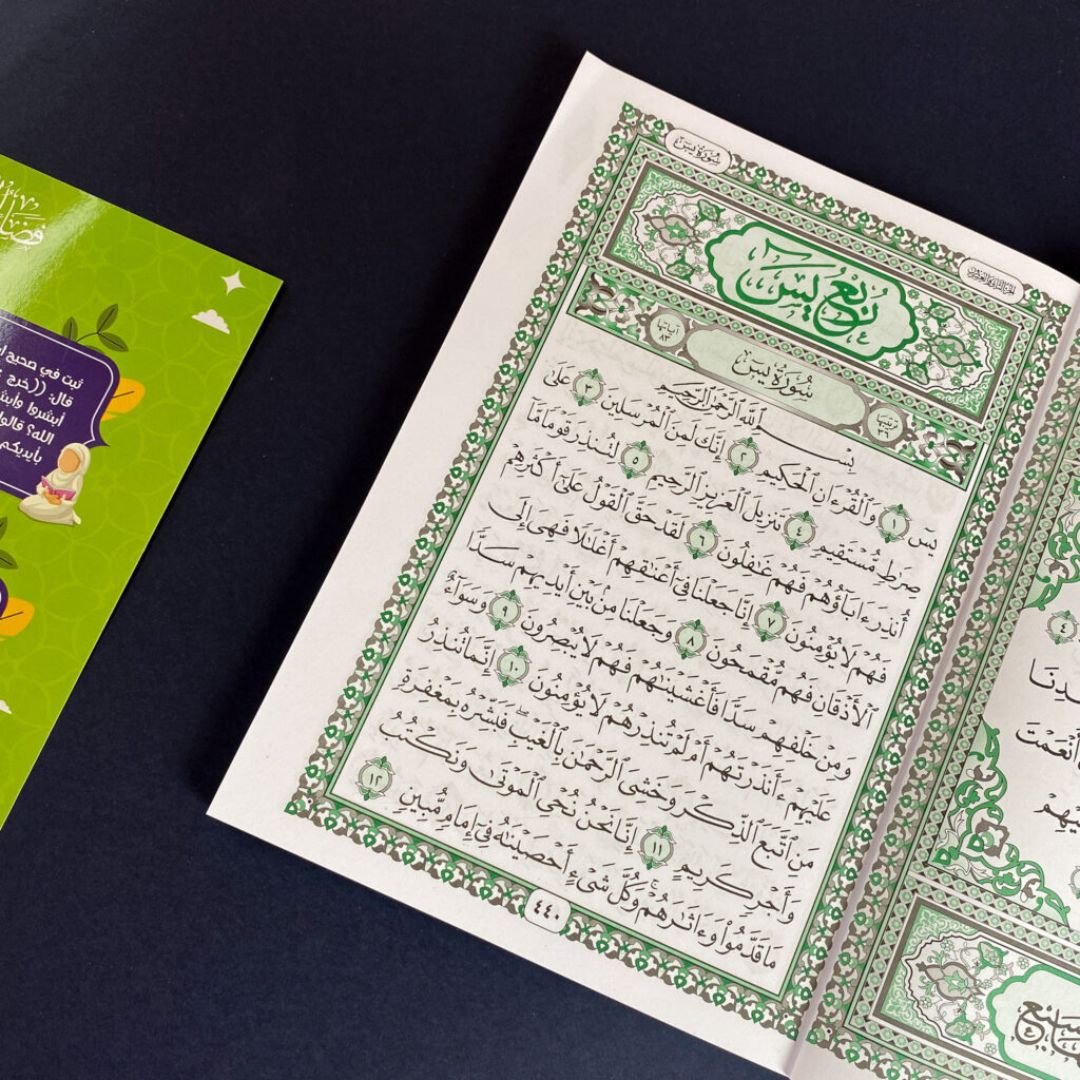 سُورَةُ يسٓ
رُبْعُ يسٓ
آيَاتُهَا ٨٣
سُورَةُ يسٓ
تَرْتِيبُهَا ٣٦
بِسْمِ ٱللَّهِ ٱلرَّحْمَٰنِ ٱلرَّحِيمِ
يسٓ ١ وَٱلْقُرْءَانِ ٱلْحَكِيمِ ٢ إِنَّكَ لَمِنَ ٱلْمُرْسَلِينَ ٣ عَلَىٰ
صِرَٰطٍ مُّسْتَقِيمٍ ٤ تَنزِيلَ ٱلْعَزِيزِ ٱلرَّحِيمِ ٥ لِتُنذِرَ قَوْمًا مَّآ
أُنذِرَ ءَابَآؤُهُمْ فَهُمْ غَٰفِلُونَ ٦ لَقَدْ حَقَّ ٱلْقَوْلُ عَلَىٰٓ أَكْثَرِهِمْ
فَهُمْ لَا يُؤْمِنُونَ ٧ إِنَّا جَعَلْنَا فِىٓ أَعْنَٰقِهِمْ أَغْلَٰلًا فَهِىَ إِلَى
ٱلْأَذْقَانِ فَهُم مُّقْمَحُونَ ٨ وَجَعَلْنَا مِنۢ بَيْنِ أَيْدِيهِمْ سَدًّا
وَمِنْ خَلْفِهِمْ سَدًّا فَأَغْشَيْنَٰهُمْ فَهُمْ لَا يُبْصِرُونَ ٩ وَسَوَآءٌ
عَلَيْهِمْ ءَأَنذَرْتَهُمْ أَمْ لَمْ تُنذِرْهُمْ لَا يُؤْمِنُونَ ١٠ إِنَّمَا تُنذِرُ
مَنِ ٱتَّبَعَ ٱلذِّكْرَ وَخَشِىَ ٱلرَّحْمَٰنَ بِٱلْغَيْبِ ۖ فَبَشِّرْهُ بِمَغْفِرَةٍ
وَأَجْرٍ كَرِيمٍ ١١ إِنَّا نَحْنُ نُحْىِ ٱلْمَوْتَىٰ وَنَكْتُبُ
مَا قَدَّمُوا۟ وَءَاثَٰرَهُمْ ۚ وَكُلَّ شَىْءٍ أَحْصَيْنَٰهُ فِىٓ إِمَامٍ مُّبِينٍ ١٢
٤٤٠
٤
أَنْعَمْتَ
ثبت في صحيح
قال: ((خرج
أبشروا
الله؟ قالوا
بأيديكم